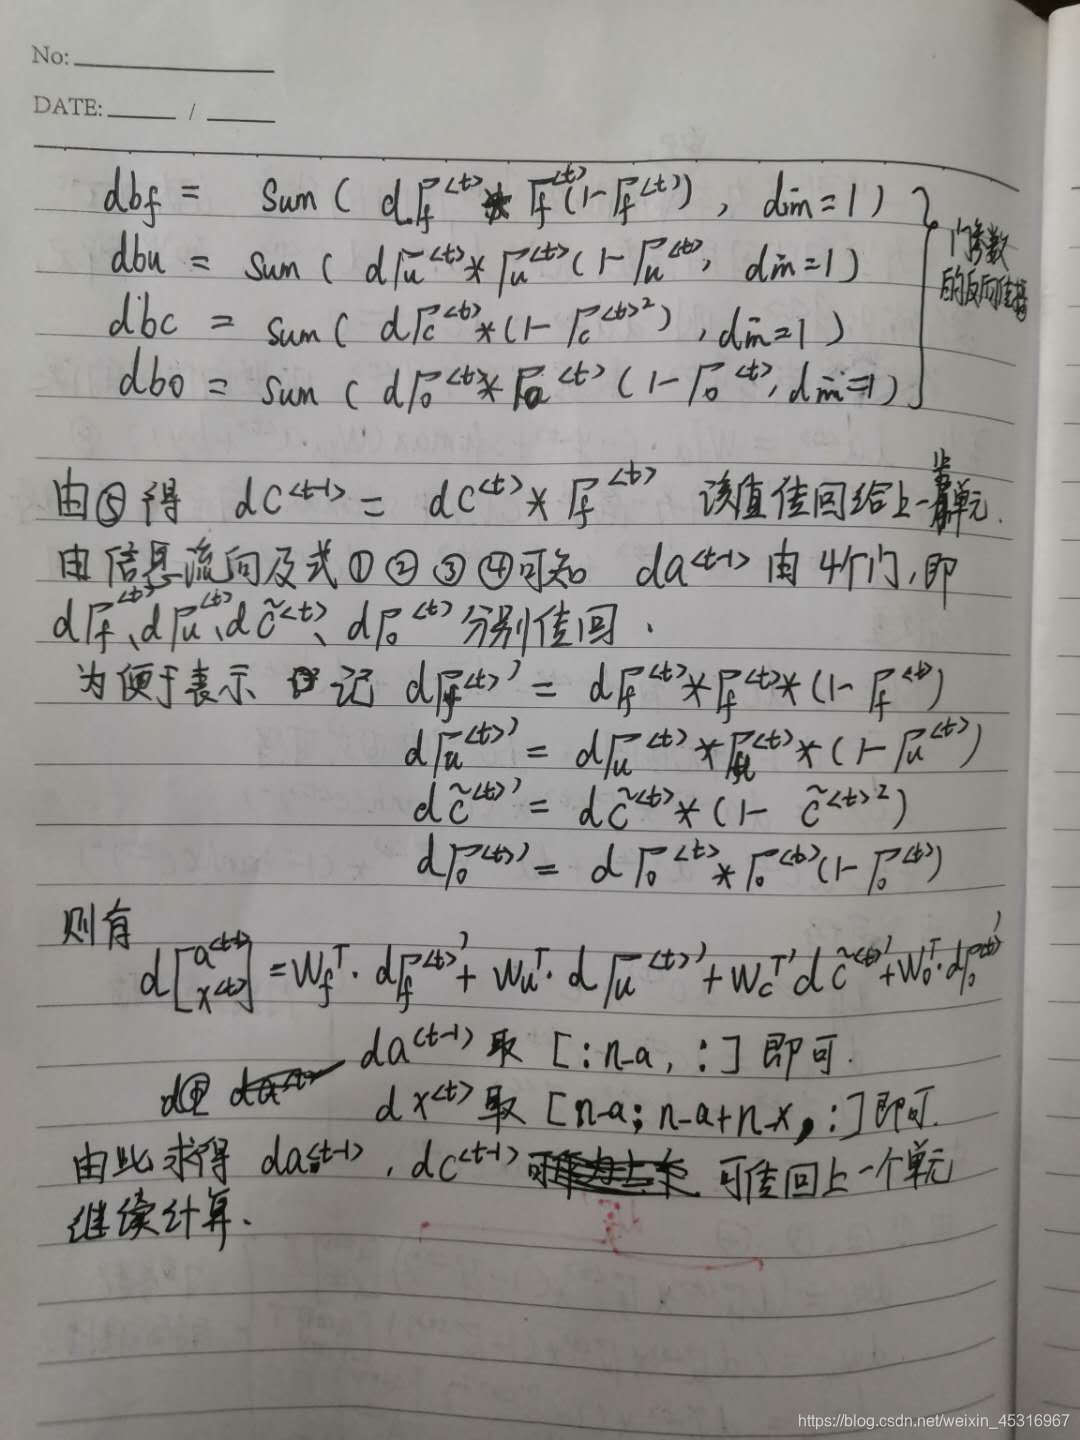 No:
DATE: /
dbf = sum( dΓf<t> * Γf<t>(1-Γf<t>) , dim=1 )
dbu = sum( dΓu<t> * Γu<t>(1-Γu<t>, dim=1 )
门参数
的反向传播
dbc = sum( dΓc<t> * (1-Γc<t>²) , dim=1 )
dbo = sum( dΓo<t> * Γo<t>(1-Γo<t>, dim=1 )
由⑤得 dC<t-1> = dC<t> * Γf<t> 该值传回给上一单元.
由信息流向及式①②③④可知 da<t-1> 由4个门,即
dΓf<t>、dΓu<t>、dc̃<t>、dΓo<t> 分别传回.
为便于表示 记 dΓf<t>' = dΓf<t> * Γf<t> * (1-Γf<t>)
dΓu<t>' = dΓu<t> * Γu<t> * (1-Γu<t>)
dc̃<t>' = dc̃<t> * (1- c̃<t>²)
dΓo<t>' = dΓo<t> * Γo<t>(1-Γo<t>)
则有
d[a<t-1> x<t>] = Wf^T · dΓf<t>' + Wu^T · dΓu<t>' + Wc^T' dc̃<t>' + Wo^T · dΓo<t>'
da<t-1> 取 [:n-a, :] 即可.
dx<t> 取 [n-a: n-a+n-x, :] 即可.
由此求得 da<t-1>, dc<t-1> 可传回上一个单元
继续计算.
https://blog.csdn.net/weixin_45316967